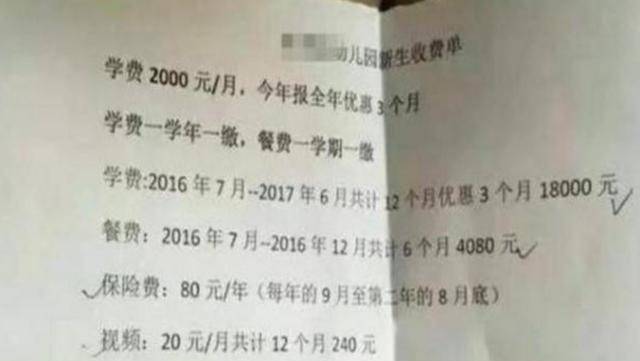 幼儿园新生收费单
学费 2000 元/月，今年报全年优惠 3 个月
学费一学年一缴，餐费一学期一缴
学费:2016 年 7 月--2017 年 6 月共计 12 个月优惠 3 个月 18000 元
餐费：2016 年 7 月--2016 年 12 月共计 6 个月 4080 元
保险费：80 元/年（每年的 9 月至第二年的 8 月底）
视频：20 元/月共计 12 个月 240 元